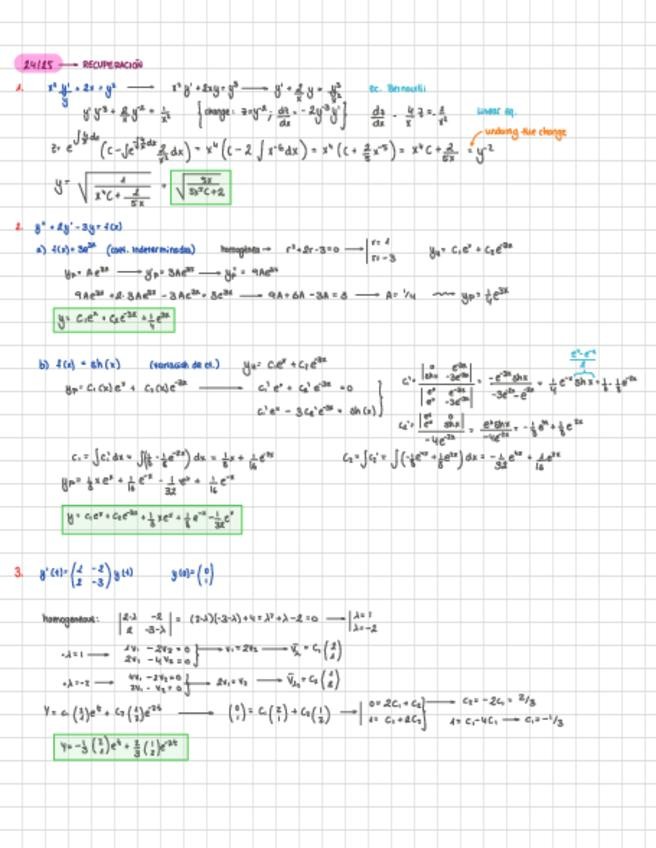 24/25 → RECUPERACIÓN
1. x² y'/y + 2x = y² → x² y' + 2xy = y³ → y' + 2/x y = y³/x² ec. Bernoulli
y' y⁻³ + 2/x y⁻² = 1/x² {change: z = y⁻²; dz/dx = -2y⁻³ y'} dz/dx - 4/x z = -2/x² linear eq.
undoing the change
z = e^∫4/x dx (C - ∫e^-∫4/x dx 2/x² dx) = x⁴ (C - 2 ∫ x⁻⁶ dx) = x⁴ (C + 2/5 x⁻⁵) = x⁴C + 2/5x = y⁻²
y = √(1/(x⁴C + 2/5x)) = √(5x/(5x⁵C + 2))
2. y'' + 2y' - 3y = f(x)
a) f(x) = 3e³ˣ (coef. indeterminados) homogénea → r² + 2r - 3 = 0 → | r = 1 r = -3 y_H = C₁eˣ + C₂e⁻³ˣ
y_P = Ae³ˣ → y'_P = 3Ae³ˣ → y''_P = 9Ae³ˣ
9Ae³ˣ + 2·3Ae³ˣ - 3Ae³ˣ = 3e³ˣ → 9A + 6A - 3A = 3 → A = 1/4 → y_P = 1/4 e³ˣ
y = C₁eˣ + C₂e⁻³ˣ + 1/4 e³ˣ
b) f(x) = sh(x) (variación de ct.) y_H = C₁eˣ + C₂e⁻³ˣ
y_P = C₁(x)eˣ + C₂(x)e⁻³ˣ → C₁'eˣ + C₂'e⁻³ˣ = 0
C₁'eˣ - 3C₂'e⁻³ˣ = sh(x)
C₁' = |0 e⁻³ˣ; shx -3e⁻³ˣ| / |eˣ e⁻³ˣ; eˣ -3e⁻³ˣ| = -e⁻³ˣ shx / (-3e⁻²ˣ - e⁻²ˣ) = 1/4 e⁻ˣ shx = 1/8 - 1/8 e⁻²ˣ
(eˣ - e⁻ˣ)/2
C₂' = |eˣ 0; eˣ shx| / -4e⁻²ˣ = eˣ shx / -4e⁻²ˣ = -1/8 e⁴ˣ + 1/8 e²ˣ
C₁ = ∫C₁' dx = ∫(1/8 - 1/8 e⁻²ˣ) dx = 1/8 x + 1/16 e⁻²ˣ C₂ = ∫C₂' = ∫(-1/8 e⁴ˣ + 1/8 e²ˣ) dx = -1/32 e⁴ˣ + 1/16 e²ˣ
y_P = 1/8 xeˣ + 1/16 e⁻ˣ - 1/32 eˣ + 1/16 e⁻ˣ
y = C₁eˣ + C₂e⁻³ˣ + 1/8 xeˣ + 1/8 e⁻ˣ - 1/32 eˣ
3. y'(t) = (2 -2; 2 -3) y(t) y(0) = (0; 1)
homogeneous: |2-λ -2; 2 -3-λ| = (2-λ)(-3-λ) + 4 = λ² + λ - 2 = 0 → | λ = 1 λ = -2
·λ = 1 → 1v₁ - 2v₂ = 0 2v₁ - 4v₂ = 0 → v₁ = 2v₂ → v̄₁ = C₁ (2; 1)
·λ = -2 → 4v₁ - 2v₂ = 0 2v₁ - v₂ = 0 → 2v₁ = v₂ → v̄₂ = C₂ (1; 2)
Y = C₁ (2; 1) eᵗ + C₂ (1; 2) e⁻²ᵗ → (0; 1) = C₁ (2; 1) + C₂ (1; 2) → | 0 = 2C₁ + C₂ 1 = C₁ + 2C₂ → C₂ = -2C₁ = 2/3
1 = C₁ - 4C₁ → C₁ = -1/3
Y = -1/3 (2; 1) eᵗ + 2/3 (1; 2) e⁻²ᵗ